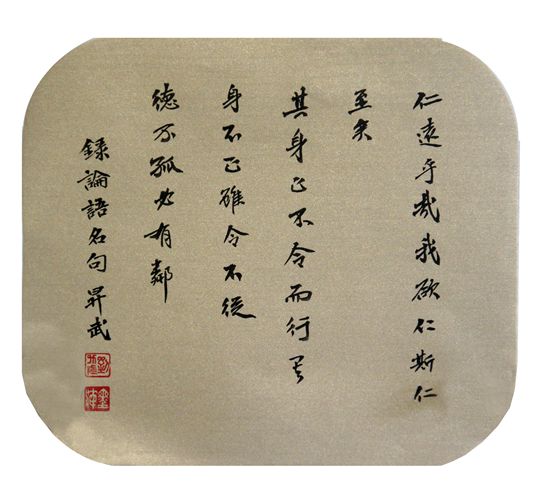 仁遠乎哉我欲仁斯仁
至矣
其身正不令而行其
身不正雖令不從
德不孤必有鄰
錄論語名句昇武